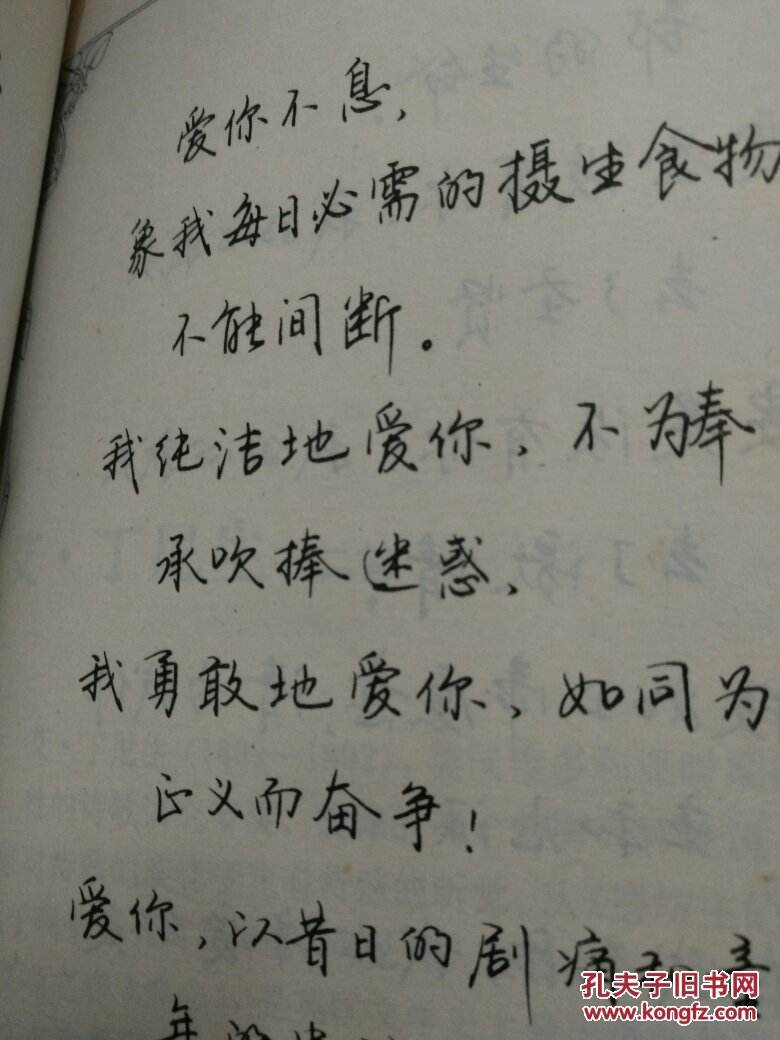 爱你不息,
象我每日必需的摄生食物
不能间断。
我纯洁地爱你,不为奉
承吹捧迷惑,
我勇敢地爱你、如同为
正义而奋争!
爱你,以昔日的剧痛和童
年的忠
孔夫子旧书网
www.kongfz.com